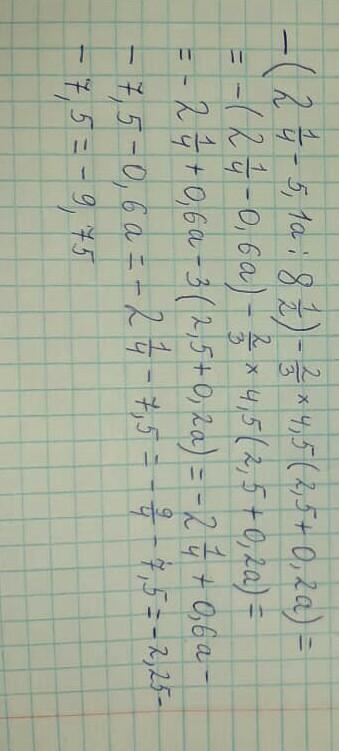 -(2 1/4 - 5,1a : 8 1/2) - 2/3 × 4,5(2,5+0,2a) =
= -(2 1/4 - 0,6a) - 2/3 × 4,5(2,5+0,2a) =
= -2 1/4 + 0,6a - 3(2,5+0,2a) = -2 1/4 + 0,6a -
- 7,5 - 0,6a = -2 1/4 - 7,5 = -9/4 - 7,5 = -2,25 -
- 7,5 = -9,75